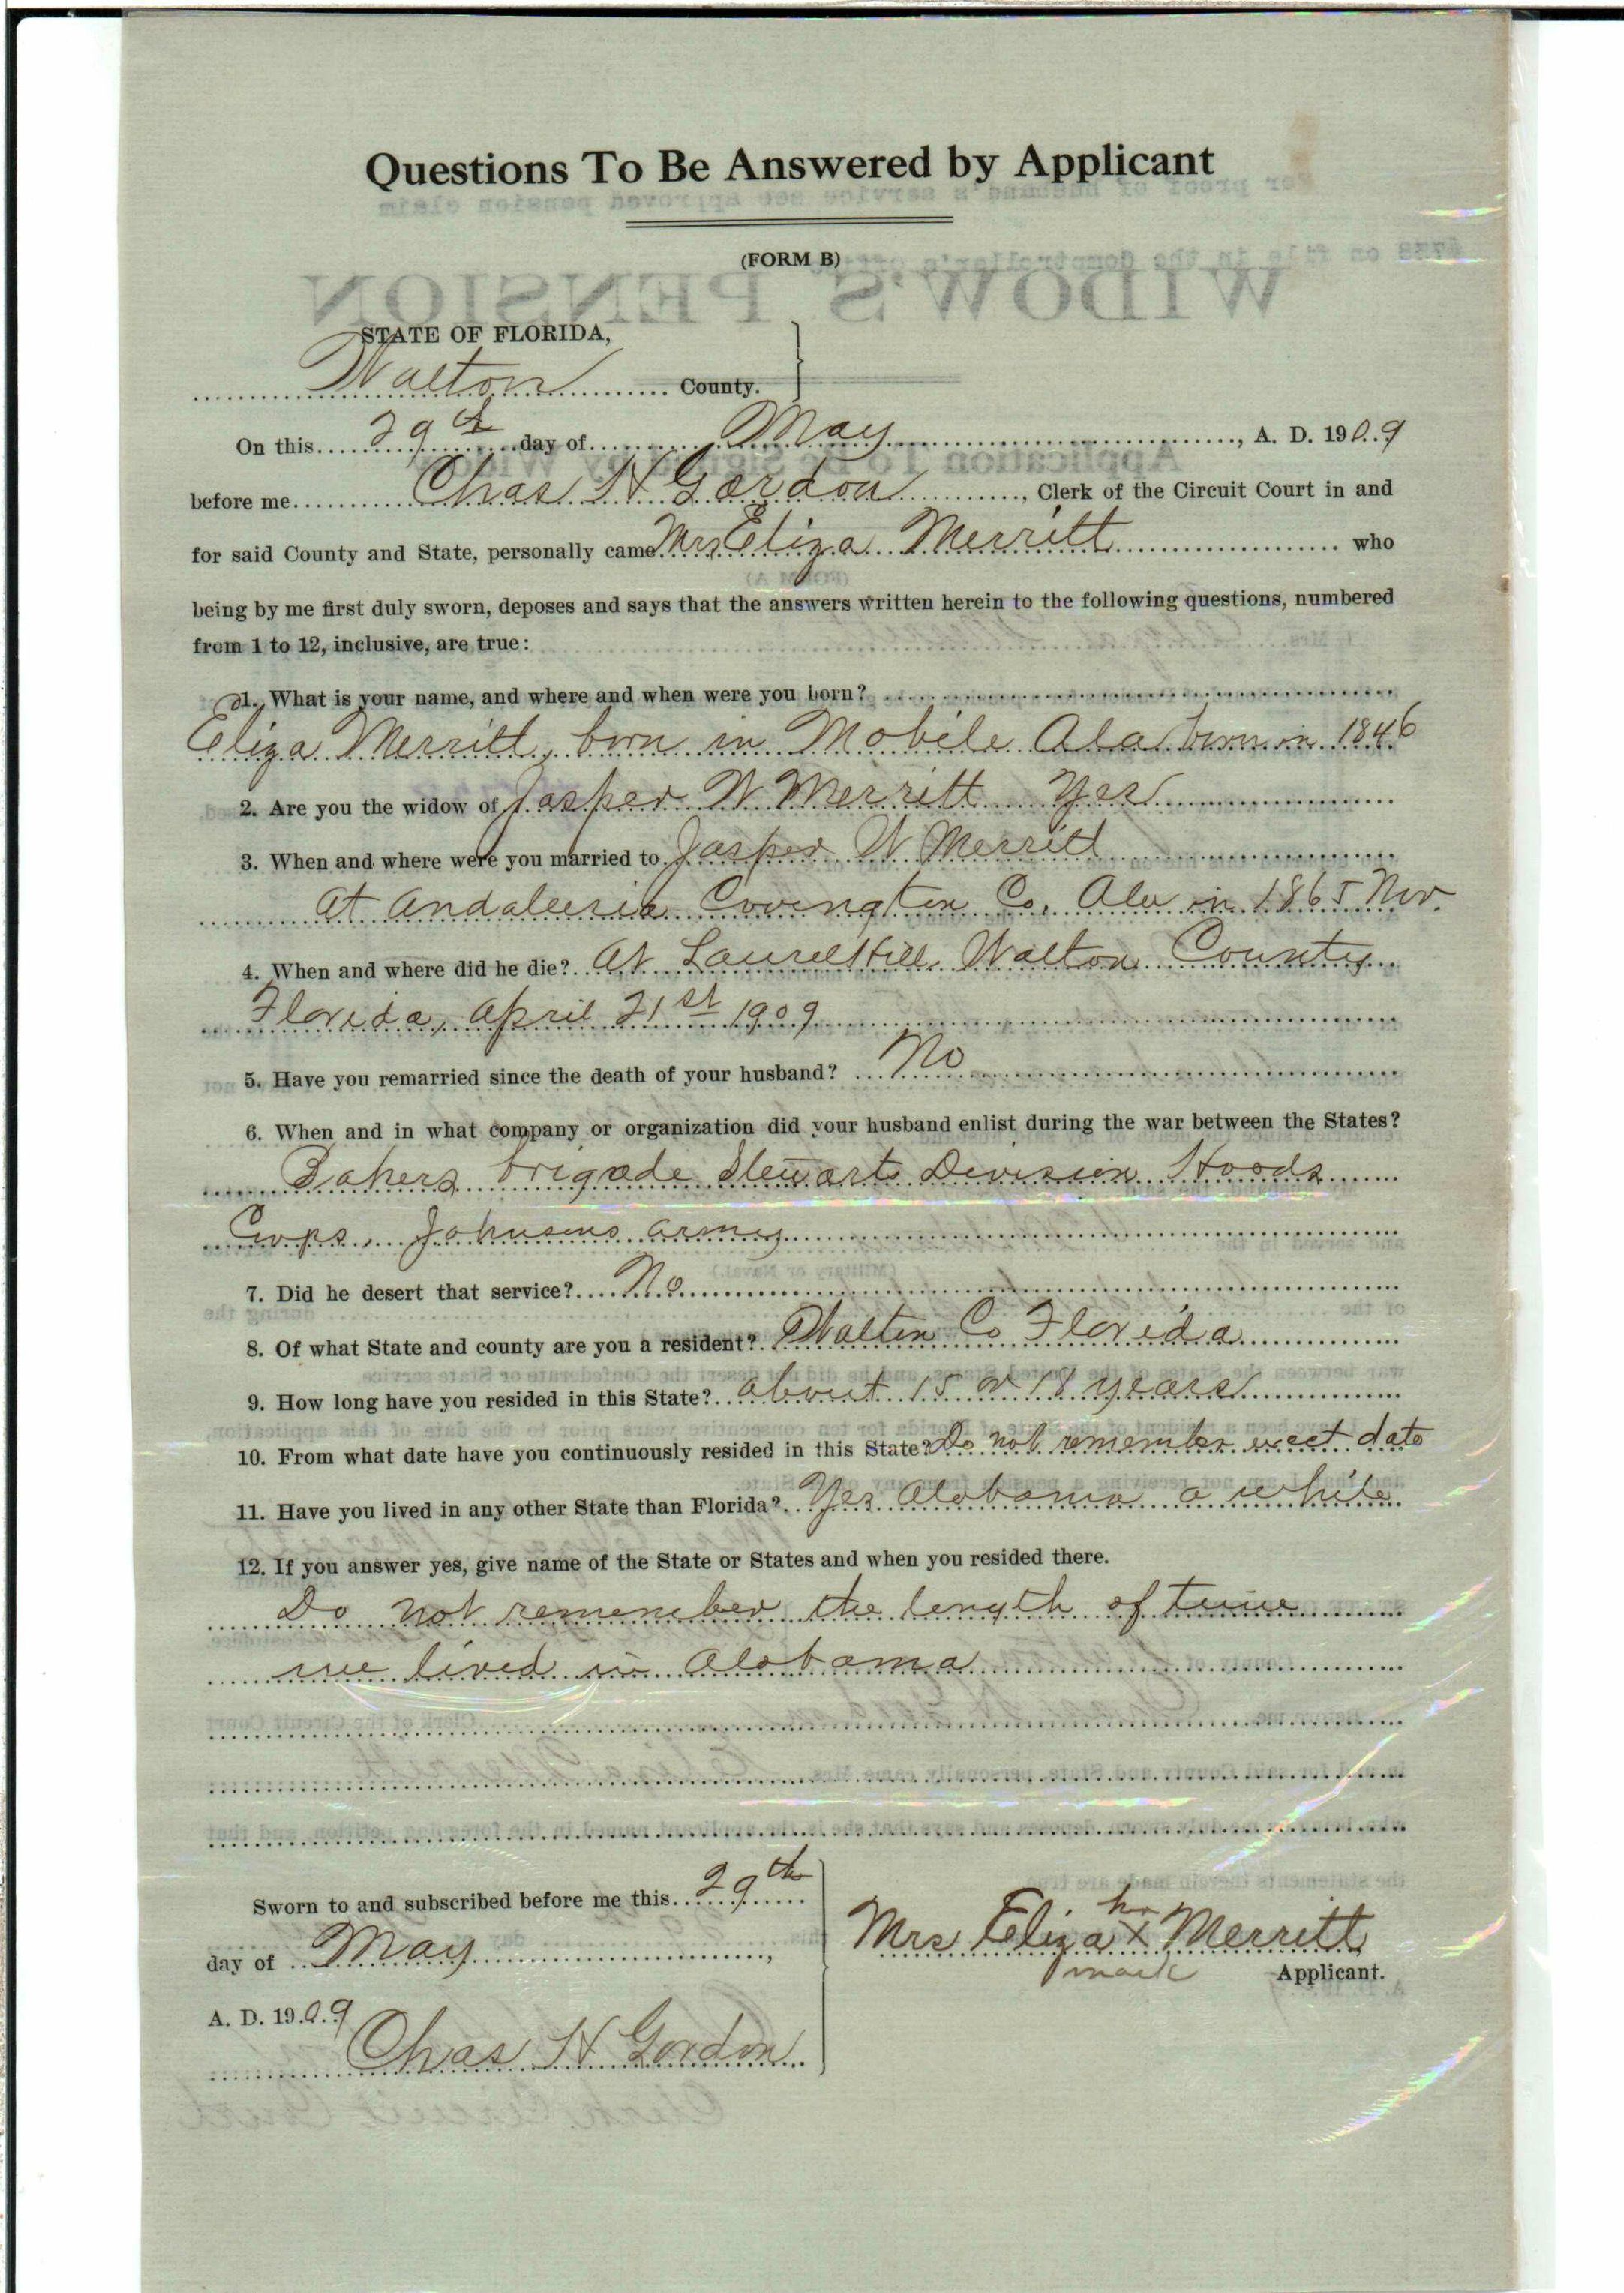 Questions To Be Answered by Applicant
(FORM B)
WIDOW'S PENSION
STATE OF FLORIDA,
Walton County.
On this 29th day of May, A. D. 1909
before me Chas H Gordon, Clerk of the Circuit Court in and
for said County and State, personally came Mrs Eliza Merritt who
being by me first duly sworn, deposes and says that the answers written herein to the following questions, numbered
from 1 to 12, inclusive, are true:
1. What is your name, and where and when were you born?
Eliza Merritt, born in Mobile Ala born in 1846
2. Are you the widow of Jasper W Merritt Yes
3. When and where were you married to Jasper W Merritt
At Andalusia Covington Co. Ala in 1865 Nov.
4. When and where did he die? At Laurel Hill, Walton County
Florida, April 21st 1909
5. Have you remarried since the death of your husband? No
6. When and in what company or organization did your husband enlist during the war between the States?
Bakers brigade Stewarts Division Hoods
Corps, Johnsons army
7. Did he desert that service? No
8. Of what State and county are you a resident? Walton Co Florida
9. How long have you resided in this State? about 15 or 18 years
10. From what date have you continuously resided in this State? Do not remember exect date
11. Have you lived in any other State than Florida? Yes Alabama a while
12. If you answer yes, give name of the State or States and when you resided there.
Do not remember the length of time
we lived in Alabama
Sworn to and subscribed before me this 29th
day of May,
A. D. 1909
Chas H Gordon
her
Mrs Eliza X Merritt
mark
Applicant.